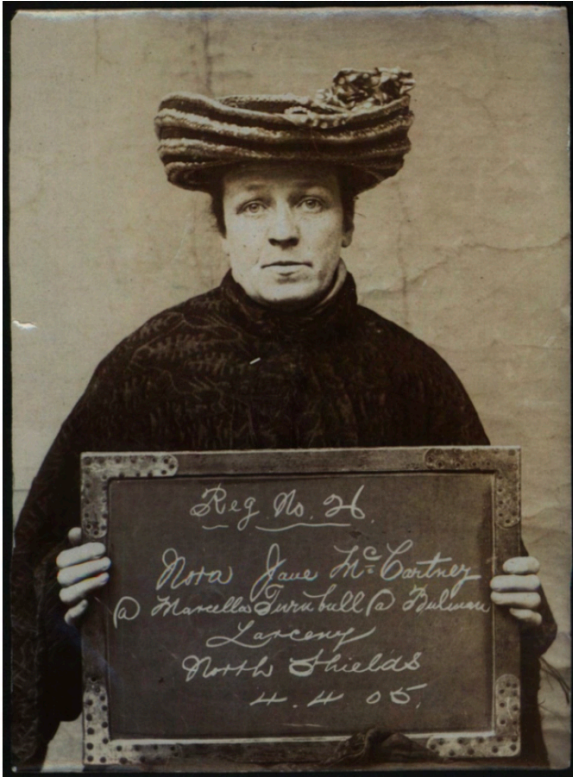 Reg No. 26.
Nora Jane McCartney
@ Marcella Turnbull @ Bulman
Larceny
North Shields
4. 4 05.